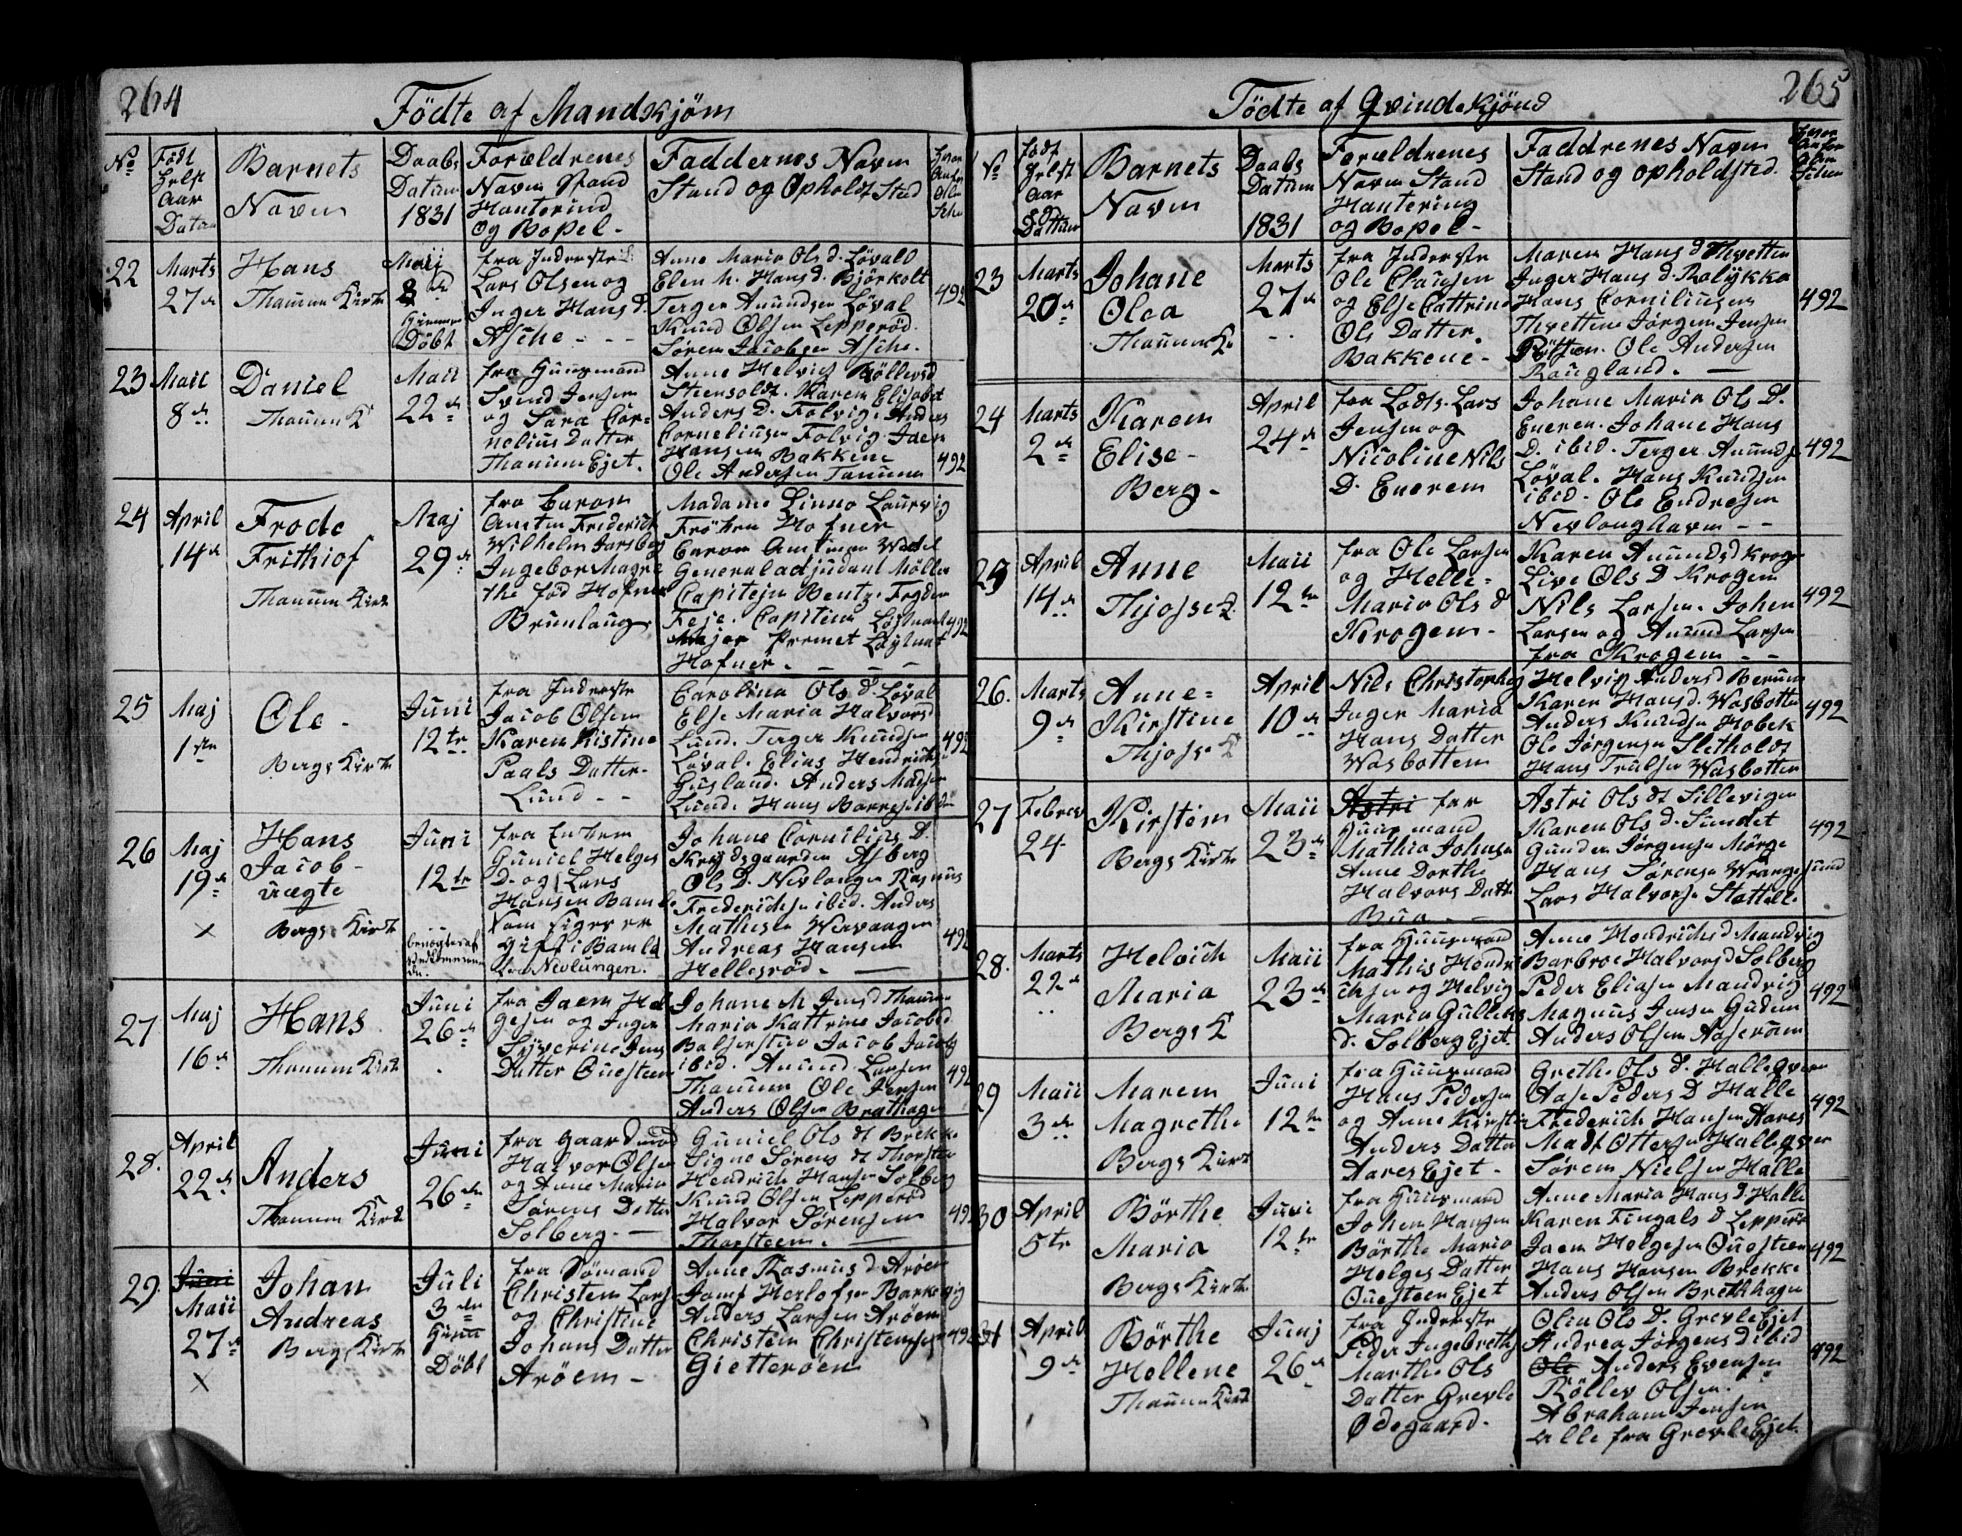 264
Födte af Mandkjöm
No
Födt
Helst
Aar
Datum
Barnets
Navn
Daabs
Datum
1831
Forældrenes
Navn Stand
Hantering
og Bopel-
Faddernes Navn
Stand og Opholds Sted
22
Marts
27de
Hans
Thanum Kirke
Maij
8de
Hiemme
Döbt
fra Inderste
Lars Olsen og
Inger Hans D.
Asche - - -
Anne Maria Ols d. Løvall
Elen M. Hans d. Björkolt
Terger Anundsen Løval
Knud Olsen Lepperöd.
Sören Jacobsen Asche.
492
23
Maii
8de
Daniel
Thanum K
Maii
22de
fra Huusmand
Svend Jensen
og Sara Cor-
nelius Datter
Thanum Ejet.
Anne Helvig Röllevsd
Steensolt. Karen Elisabet
Anders D. Folvig. Anders
Corneliusen Folvig. Jaen
Hansen Bakkene
Ole Andersen Tanum
492
24
April
14de
Frode
Frithiof
Thanum Kirke
Maj
29de
fra Baron
Amtm Friderich
Wilhelm Jarsberg
Ingebor Magre
the fød Hofner
Brunlaug
Madame Linno Laurvig
Fröken Hofner
Baron Amtmann Wedel
Generaladjudant Möller
Capitejn Bentz. Fogden
Feje. Capitein
Major Premet
Hofner. - - -
492
25
Maj
1ste
Ole -
Bergs Kirke
Juni
12te
fra Inderste
Jacob Olsen
Karen Kistine
Paals Datter
Lund - -
Carolina Ols d. Løval
Else Maria Halvorsd
Lund. Terger Knudsen
Løval. Elias Hendrichs
Gusland. Anders Madsen
Lund. Hans Borresen ibden
492
26
Maj
19de
x
Hans
Jacob-
uægte
Bergs Kirke
Juni
12te
fra Enken
Guniel Helges
D. og Lars
Hansen Bamle
som siges er
Gift i Bamle
fra Nevlungen.
Johane Cornilius D.
Krydsgaarden Asberg
Ols D. Nevlungen Rasmus
Frederichsen ibid. Anders
Mathesen Wervaagen
Andreas Hansen
Hellesröd. -
492
27
Maj
16de
Hans
Thanum Kirke
Juni
26de
fra Jaen Hel
gesen og Inger
Syverine Jens
Datter Ouesteen
Johane M Jens d Thanum
Maria Kattrine Jacobsd
Jacob Jacobs
ibid. Anund Larsen
Thanum Ole Jensen
Anders Olsen Brathagen
492
28.
April
22de
Anders
Thanum Kirke
Juni
26de
fra Gaardmand
Halvor Olsen
og Anne Maria
Sörens Datter
Solberg. -
Guniel Ols dt Brekke
Signe Sörens dt Thorsteen
Hendrich Hansen Solberg
Knud Olsen Lepperöd
Halvor Sörensen
Thorsteen. -
492
29.
Juni
Maii
27de
x
Johan
Andreas
Bergs Kirke
Juli
3de
Hiem
Döbt
fra Sömand
Christen Larsen
og Christine
Johans Datter
Aröen -
Anne Rasmus d Aröen
Herlofsen Barkevig
Anders Larsen Aröen
Christen Christensen
Gietteröen
492

265
Födte af Qvindekjönd
No
Födt
Helst
Aar
Dattum
Barnets
Navn
Daabs
Datum
1831
Forældrenes
Navn Stand
Hantering
og Bopel-
Faddrenes Navn
Stand og opholdsted.
23
Marts
20de
Johane
Olea
Thanum K
Marts
27de
fra Inderste
Ole Clausen
og Else Cattrine
Ols Datter.
Bakkene-
Maren Hans d Thvetten
Inger Hans d. Rolykka
Hans Corniliusen
Thvetten Jörgen Jensen
Ole Andersen
Rougland. -
492
24
Marts
2de
Karen
Elise-
Berg-
April
24de
fra Lodts. Lars
Jensen og
Nicoline Nils
D. Eneren
Johane Maria Ols D.
Eneren. Johane Hans
D. ibid. Terger Anunds
Løval. Hans Knudsen
ibid. Ole Endresen
Nevlonghavn - -
492
25
April
14de
Anne
Thjøsse K.
Maii
12te
fra Ole Larsen
og Helle-
Maria Ols d
Krogen-
Karen Anunds d Krogn
Live Ols D Krogen
Nils Larsen. Johen
Larsen og Anund Larsen
fra Krogen - -
492
26.
Marts
9de
Anne-
Kirstine
Thjøss K
April
10de
Nils Christophs
Inger Maria
Hans Datter
Wasbotten
Helvig Anders d Berum
Karen Hans d. Wasbotten
Anders Knudsen Hobek
Ole Jörgensen Sletholdt
Hans Trulsen Wasbotten
492
27
Februar
24-
Kirsten
Bergs Kirke
Maii
23de
Astri fra
Huusmand
Mathia Johnsen
Anne Dorthe
Halvors Datt
Bua - -
Astri Ols dt Sillevigen
Karen Ols d. Sundet
Gunder Jörgensen Mörge
Hans Sörensen Wrangesund
Lars Halvorsen Stattelle
492
28.
Marts
22de
Helvich
Maria
Bergs K
Maii
23de
fra Huusmand
Mathis Hendri
chsen og Helvig
Maria Gulleks
d. Solberg Ejet.
Anne Hendrichs d Mandvig
Barbroe Halvors d Solberg
Peder Eliasen Mandvig
Magnus Jensen Guden
Anders Olsen Aaserum
492
29
Maii
3de
Maren
Magrethe
Bergs Kirke
Juni
12te
fra Huusmand
Hans Pedersen
og Anne Kirsti
Anders Datter
Aares Ejet-
Grethe Ols d. Halleqvern
Aase Peders D Halle
Frederich Hansen Aares
Madt Ottersen Halleqver
Sören Nielsen Halle
492
30
April
5te
Börthe
Maria
Bergs Kirke
Juni
12te
fra Huusmand
Johen Hansen
Börthe Maria
Helges Datter
Ouesteen Ejet
Anne Maria Hans D. Halle
Karen Fingals d Lepperöd
Jaen Helgesen Ouesteen
Hans Hansen Brekke
Anders Olsen Bretthagen
492
31
April
9de
Börthe
Hellene
Thanum Kirke
Junj
26de
fra Inderste
Peder Ingebreths
Marthe Ols
Datter Grevle
Ødegaard-
Olia Ols D. Grevle Ejet
Andrea Jörgens d ibid
Ole Anders Evensen
Röllev Olsen.
Abraham Jensen
alle fra Grevle Ejet.
492